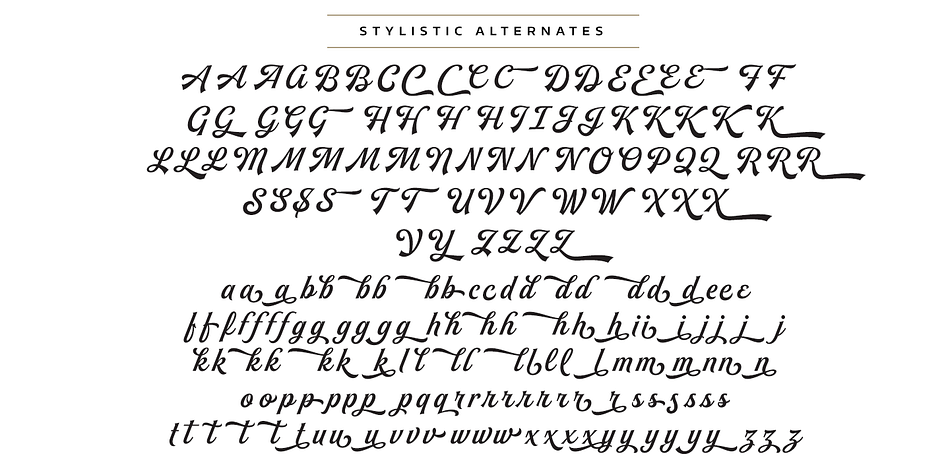 STYLISTIC ALTERNATES
AAAABBCCCCC DDEEEEE FF
GGGGG HHHHIIJJKKKKK
LLLMMMMMNNNNNOOPQQRRR
SSSS TT UVVWWXXX
YYZZZZ
aaabbbbbbccddddddeee
fffffffggggghhhhhhiiijjjj
kkkkkklllllllmmmnnn
oopppppppqqrrrrrrrrssssss
ttttttuuuvvvwwwxxxxyyyyyyzzz